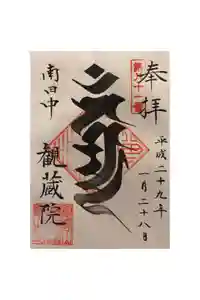 奉拝
平成二十九年
一月二十八日
南田中
観蔵院